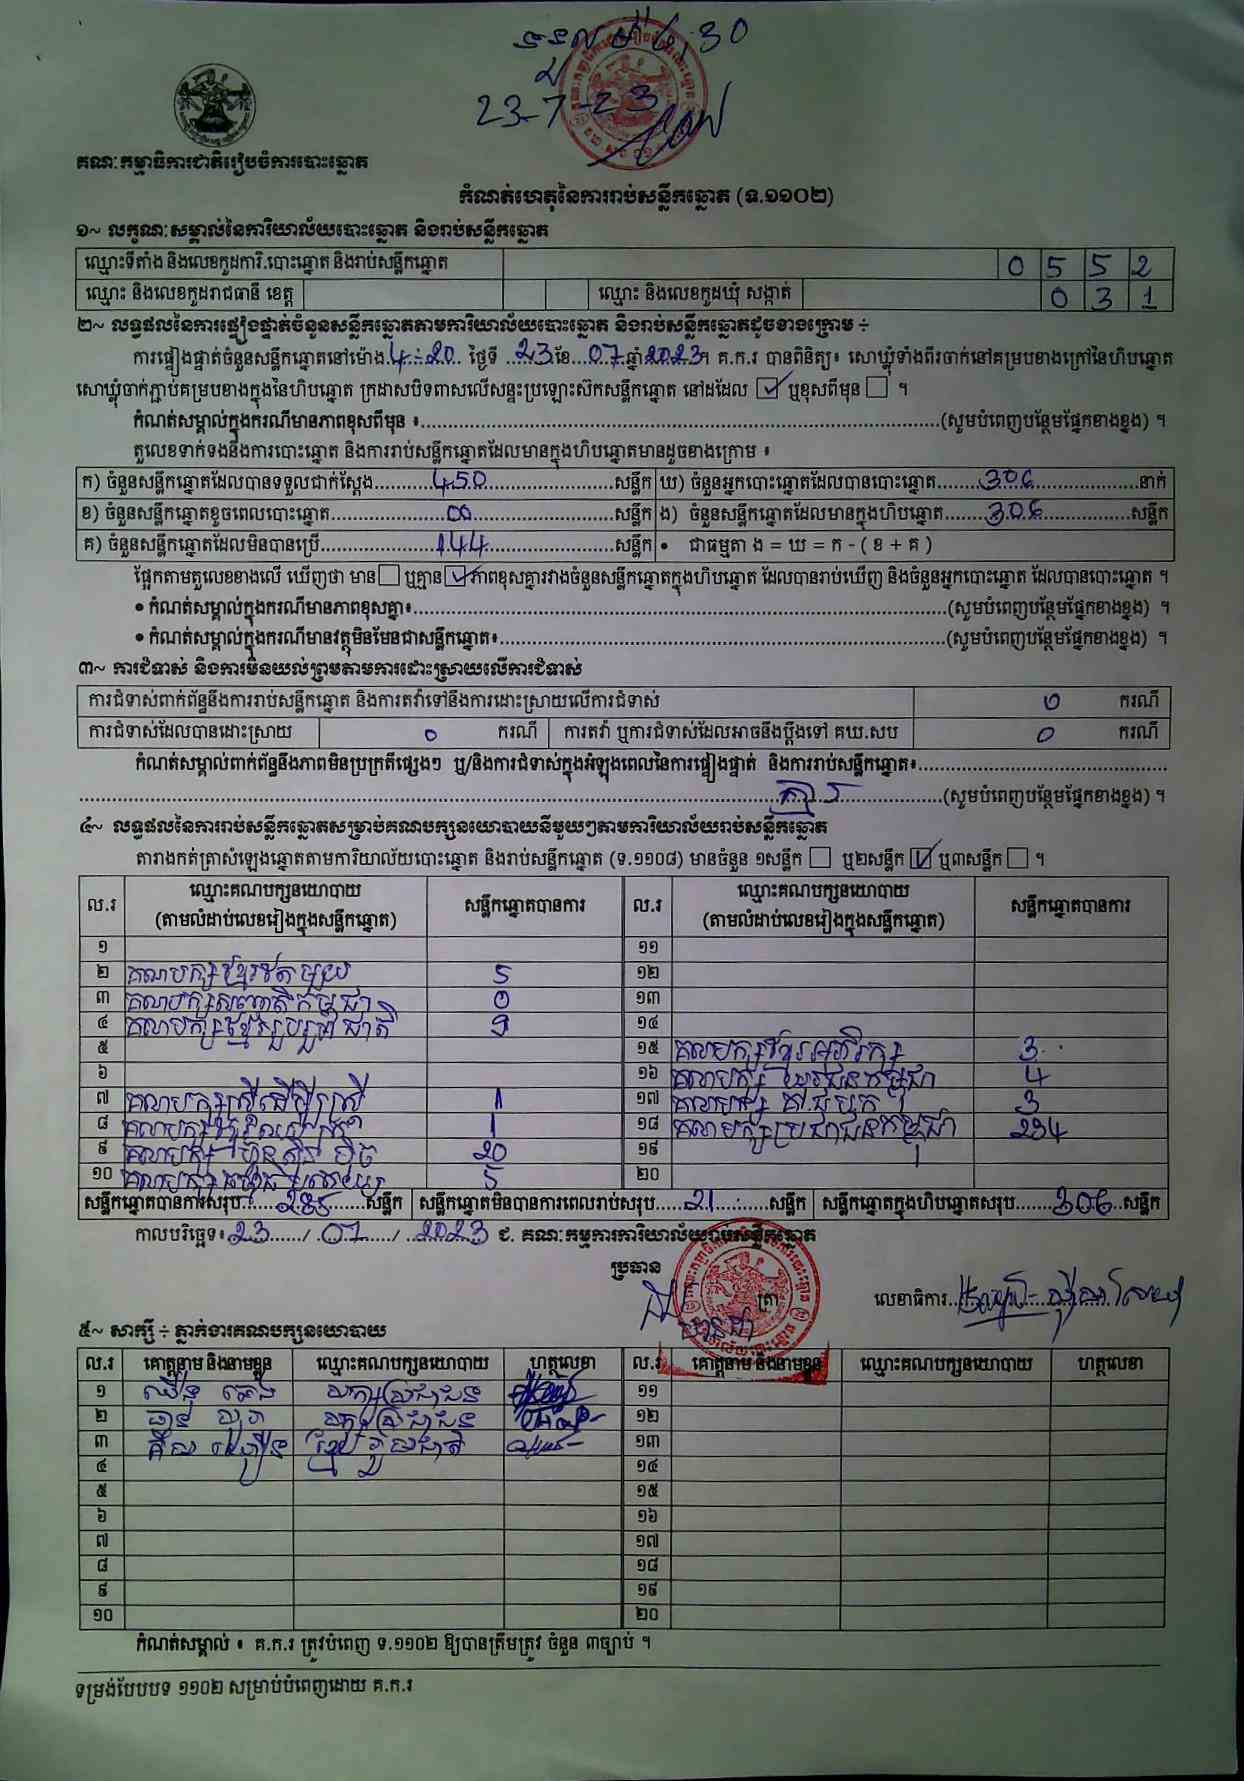 ៤,30
23-7-23
គណៈកម្មាធិការជាតិរៀបចំការបោះឆ្នោត
កំណត់ហេតុនៃការរាប់សន្លឹកឆ្នោត (ទ.១១០២)
១~ លក្ខណៈសម្គាល់នៃការិយាល័យបោះឆ្នោត និងរាប់សន្លឹកឆ្នោត
ឈ្មោះទីតាំង និងលេខកូដការិ.បោះឆ្នោត និងរាប់សន្លឹកឆ្នោត 0 5 5 2
ឈ្មោះ និងលេខកូដរាជធានី ខេត្ត ឈ្មោះ និងលេខកូដឃុំ សង្កាត់ 0 3 1
២~ លទ្ធផលនៃការផ្ទៀងផ្ទាត់ចំនួនសន្លឹកឆ្នោតតាមការិយាល័យបោះឆ្នោត និងរាប់សន្លឹកឆ្នោតដូចខាងក្រោម ÷
ការផ្ទៀងផ្ទាត់ចំនួនសន្លឹកឆ្នោតនៅម៉ោង 4:20 ថ្ងៃទី 23 ខែ 07 ឆ្នាំ 2023។ គ.ក.រ បានពិនិត្យ៖ សោឃ្លុំទាំងពីរចាក់នៅគម្របខាងក្រៅនៃហិបឆ្នោត
សោឃ្លុំចាក់ភ្ជាប់គម្របខាងក្នុងនៃហិបឆ្នោត ក្រដាសបិទពាសលើសន្ទះប្រឡោះស៊កសន្លឹកឆ្នោត នៅដដែល ☑ ឬខុសពីមុន ☐ ។
កំណត់សម្គាល់ក្នុងករណីមានភាពខុសពីមុន ៖...(សូមបំពេញបន្ថែមផ្នែកខាងខ្នង) ។
តួលេខទាក់ទងនឹងការបោះឆ្នោត និងការរាប់សន្លឹកឆ្នោតដែលមានក្នុងហិបឆ្នោតមានដូចខាងក្រោម ៖
ក) ចំនួនសន្លឹកឆ្នោតដែលបានទទួលជាក់ស្តែង...450...សន្លឹក ឃ) ចំនួនអ្នកបោះឆ្នោតដែលបានបោះឆ្នោត...306...នាក់
ខ) ចំនួនសន្លឹកឆ្នោតខូចពេលបោះឆ្នោត...00...សន្លឹក ង) ចំនួនសន្លឹកឆ្នោតដែលមានក្នុងហិបឆ្នោត...306...សន្លឹក
គ) ចំនួនសន្លឹកឆ្នោតដែលមិនបានប្រើ...144...សន្លឹក • ជាធម្មតា ង = ឃ = ក - ( ខ + គ )
ផ្អែកតាមតួលេខខាងលើ ឃើញថា មាន ☐ ឬគ្មាន ☑ ភាពខុសគ្នារវាងចំនួនសន្លឹកឆ្នោតក្នុងហិបឆ្នោត ដែលបានរាប់ឃើញ និងចំនួនអ្នកបោះឆ្នោត ដែលបានបោះឆ្នោត ។
• កំណត់សម្គាល់ក្នុងករណីមានភាពខុសគ្នា៖...(សូមបំពេញបន្ថែមផ្នែកខាងខ្នង) ។
• កំណត់សម្គាល់ក្នុងករណីមានវត្ថុមិនមែនជាសន្លឹកឆ្នោត៖...(សូមបំពេញបន្ថែមផ្នែកខាងខ្នង) ។
៣~ ការជំទាស់ និងការមិនយល់ព្រមតាមការដោះស្រាយលើការជំទាស់
ការជំទាស់ពាក់ព័ន្ធនឹងការរាប់សន្លឹកឆ្នោត និងការតវ៉ាទៅនឹងការដោះស្រាយលើការជំទាស់ 0 ករណី
ការជំទាស់ដែលបានដោះស្រាយ 0 ករណី ការតវ៉ា ឬការជំទាស់ដែលអាចនឹងប្តឹងទៅ គឃ.សប 0 ករណី
កំណត់សម្គាល់ពាក់ព័ន្ធនឹងភាពមិនប្រក្រតីផ្សេងៗ ឬ/និងការជំទាស់ក្នុងអំឡុងពេលនៃការផ្ទៀងផ្ទាត់ និងការរាប់សន្លឹកឆ្នោត៖...
...គ្មាន...(សូមបំពេញបន្ថែមផ្នែកខាងខ្នង) ។
៤~ លទ្ធផលនៃការរាប់សន្លឹកឆ្នោតសម្រាប់គណបក្សនយោបាយនីមួយៗតាមការិយាល័យរាប់សន្លឹកឆ្នោត
តារាងកត់ត្រាសំឡេងឆ្នោតតាមការិយាល័យបោះឆ្នោត និងរាប់សន្លឹកឆ្នោត (ទ.១១០៨) មានចំនួន ១សន្លឹក ☐ ឬ២សន្លឹក ☑ ឬ៣សន្លឹក ☐ ។
ល.រ ឈ្មោះគណបក្សនយោបាយ (តាមលំដាប់លេខរៀងក្នុងសន្លឹកឆ្នោត) សន្លឹកឆ្នោតបានការ ល.រ ឈ្មោះគណបក្សនយោបាយ (តាមលំដាប់លេខរៀងក្នុងសន្លឹកឆ្នោត) សន្លឹកឆ្នោតបានការ
១ ១១
២ គណបក្សខ្មែរតែមួយ 5 ១២
៣ គណបក្សសញ្ជាតិកម្ពុជា 0 ១៣
៤ គណបក្សខ្មែររួបរួមជាតិ 9 ១៤
៥ ១៥ គណបក្សខ្មែរអភិរក្ស 3
៦ ១៦ គណបក្សយុវជនកម្ពុជា 4
៧ គណបក្សស្រីដើម្បីស្រី 1 ១៧ គណបក្ស 3
៨ គណបក្ស 1 ១៨ គណបក្សប្រជាជនកម្ពុជា 234
៩ គណបក្សហ្វ៊ុនស៊ិនប៉ិច 20 ១៩
១០ គណបក្ស 5 ២០
សន្លឹកឆ្នោតបានការសរុប...285...សន្លឹក សន្លឹកឆ្នោតមិនបានការពេលរាប់សរុប...21...សន្លឹក សន្លឹកឆ្នោតក្នុងហិបឆ្នោតសរុប...306...សន្លឹក
កាលបរិច្ឆេទ៖ 23 / 07 / 2023 ជ. គណៈកម្មការការិយាល័យរាប់សន្លឹកឆ្នោត
ប្រធាន
ត្រា លេខាធិការ
៥~ សាក្សី ÷ ភ្នាក់ងារគណបក្សនយោបាយ
ល.រ គោត្តនាម និងនាមខ្លួន ឈ្មោះគណបក្សនយោបាយ ហត្ថលេខា ល.រ គោត្តនាម និងនាមខ្លួន ឈ្មោះគណបក្សនយោបាយ ហត្ថលេខា
១ បក្សប្រជាជន ១១
២ បក្សប្រជាជន ១២
៣ ខ្មែររួបរួមជាតិ ១៣
៤ ១៤
៥ ១៥
៦ ១៦
៧ ១៧
៨ ១៨
៩ ១៩
១០ ២០
កំណត់សម្គាល់ ៖ គ.ក.រ ត្រូវបំពេញ ទ.១១០២ ឱ្យបានត្រឹមត្រូវ ចំនួន ៣ច្បាប់ ។
ទម្រង់បែបបទ ១១០២ សម្រាប់បំពេញដោយ គ.ក.រ